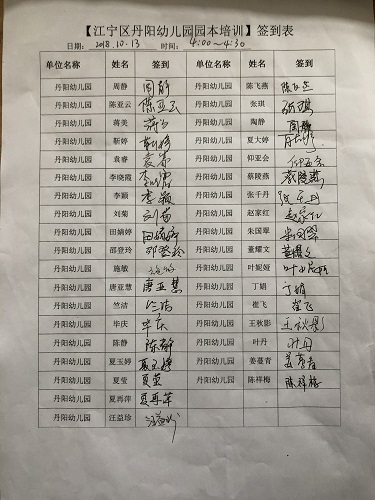 【江宁区丹阳幼儿园园本培训】签到表
日期：2018.10.13 时间：4:00～4:30
单位名称 姓名 签到 单位名称 姓名 签到
丹阳幼儿园 周静 周静 丹阳幼儿园 陈飞燕 陈飞燕
丹阳幼儿园 陈亚云 陈亚云 丹阳幼儿园 张琪 张琪
丹阳幼儿园 蒋美 蒋美 丹阳幼儿园 陶静 陶静
丹阳幼儿园 靳婷 靳婷 丹阳幼儿园 夏大婷
丹阳幼儿园 袁睿 袁睿 丹阳幼儿园 仰亚会 仰亚会
丹阳幼儿园 李晓霞 李晓霞 丹阳幼儿园 蔡陵燕 蔡陵燕
丹阳幼儿园 李颖 李颖 丹阳幼儿园 张千丹 张千丹
丹阳幼儿园 刘菊 刘菊 丹阳幼儿园 赵家红 赵家红
丹阳幼儿园 田婻婷 田婻婷 丹阳幼儿园 朱国翠 朱国翠
丹阳幼儿园 邵登玲 邵登玲 丹阳幼儿园 董耀文 董耀文
丹阳幼儿园 施敏 施敏 丹阳幼儿园 叶妮娅
丹阳幼儿园 唐亚慧 唐亚慧 丹阳幼儿园 丁娟 丁娟
丹阳幼儿园 竺洁 竺洁 丹阳幼儿园 崔飞 崔飞
丹阳幼儿园 毕庆 毕庆 丹阳幼儿园 王秋影 王秋影
丹阳幼儿园 陈静 陈静 丹阳幼儿园 叶丹 叶丹
丹阳幼儿园 夏玉婷 夏玉婷 丹阳幼儿园 姜蔓青 姜蔓青
丹阳幼儿园 夏莹 夏莹 丹阳幼儿园 陈祥梅 陈祥梅
丹阳幼儿园 夏再萍 夏再萍
丹阳幼儿园 汪益珍 汪益珍